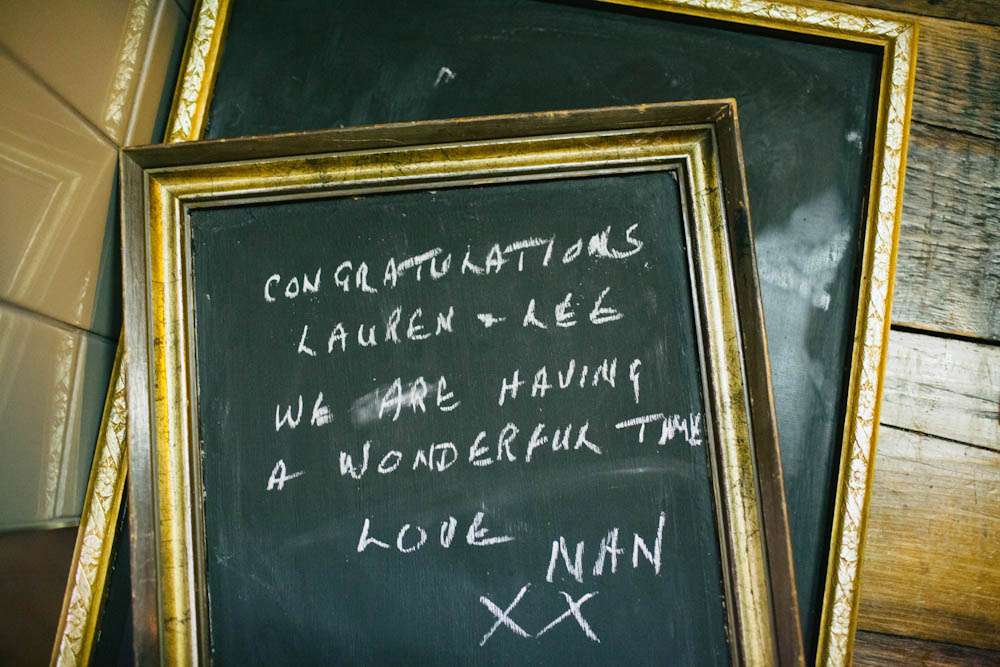 CONGRATULATIONS
LAUREN & LEE
WE ARE HAVING
A WONDERFUL TIME
LOVE NAN
XX